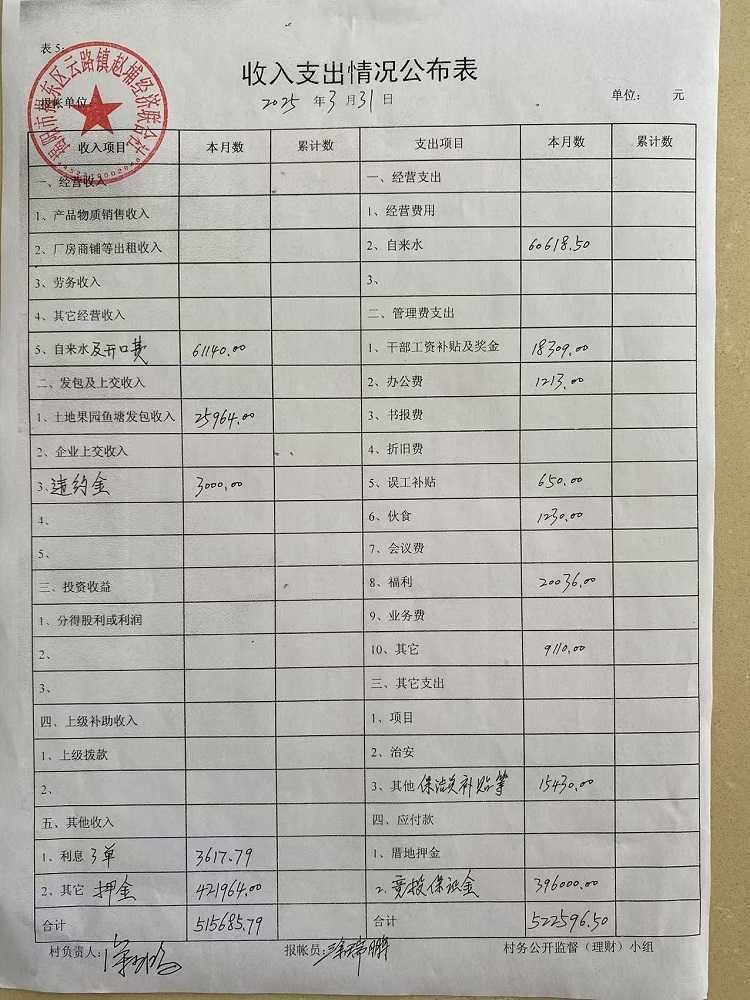 表 5:
揭阳市揭东区云路镇赵埔经济联合社
收入支出情况公布表
报账单位: 2025 年 3 月 31 日 单位: 元
收入项目 本月数 累计数 支出项目 本月数 累计数
一、经营收入 一、经营支出
1、产品物质销售收入 1、经营费用
2、厂房商铺等出租收入 2、自来水 60618.50
3、劳务收入 3、
4、其它经营收入 二、管理费支出
5、自来水及开口费 61140.00 1、干部工资补贴及奖金 18309.00
二、发包及上交收入 2、办公费 1213.00
1、土地果园鱼塘发包收入 25964.00 3、书报费
2、企业上交收入 4、折旧费
3、违约金 3000.00 5、误工补贴 650.00
4、 6、伙食 1230.00
5、 7、会议费
三、投资收益 8、福利 20036.00
1、分得股利或利润 9、业务费
2、 10、其它 9110.00
3、 三、其它支出
四、上级补助收入 1、项目
1、上级拨款 2、治安
2、 3、其他 保洁员补贴等 15430.00
五、其他收入 四、应付款
1、利息 3单 3617.79 1、厝地押金
2、其它 押金 421964.00 2、竞投保证金 396000.00
合计 515685.79 合计 522596.50
村负责人: 报帐员: 村务公开监督（理财）小组